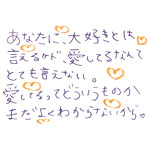 あなたに、大好きとは
言えるケド、愛してるなんて
とても言えない。
愛しょうってどういうものか
まだよくわからないから。